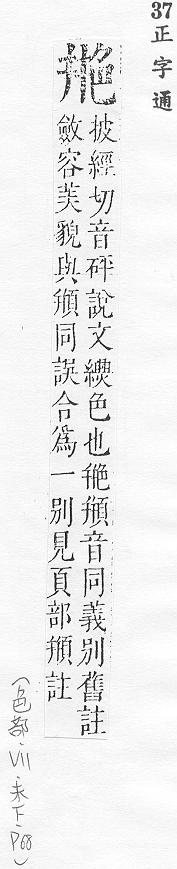 37 正字通
艵
披經切音砰說文縹色也艵頩音同義別舊註
斂容美貌與頩同誤合爲一別見頁部頩註
(色部·VII·未下·P68)